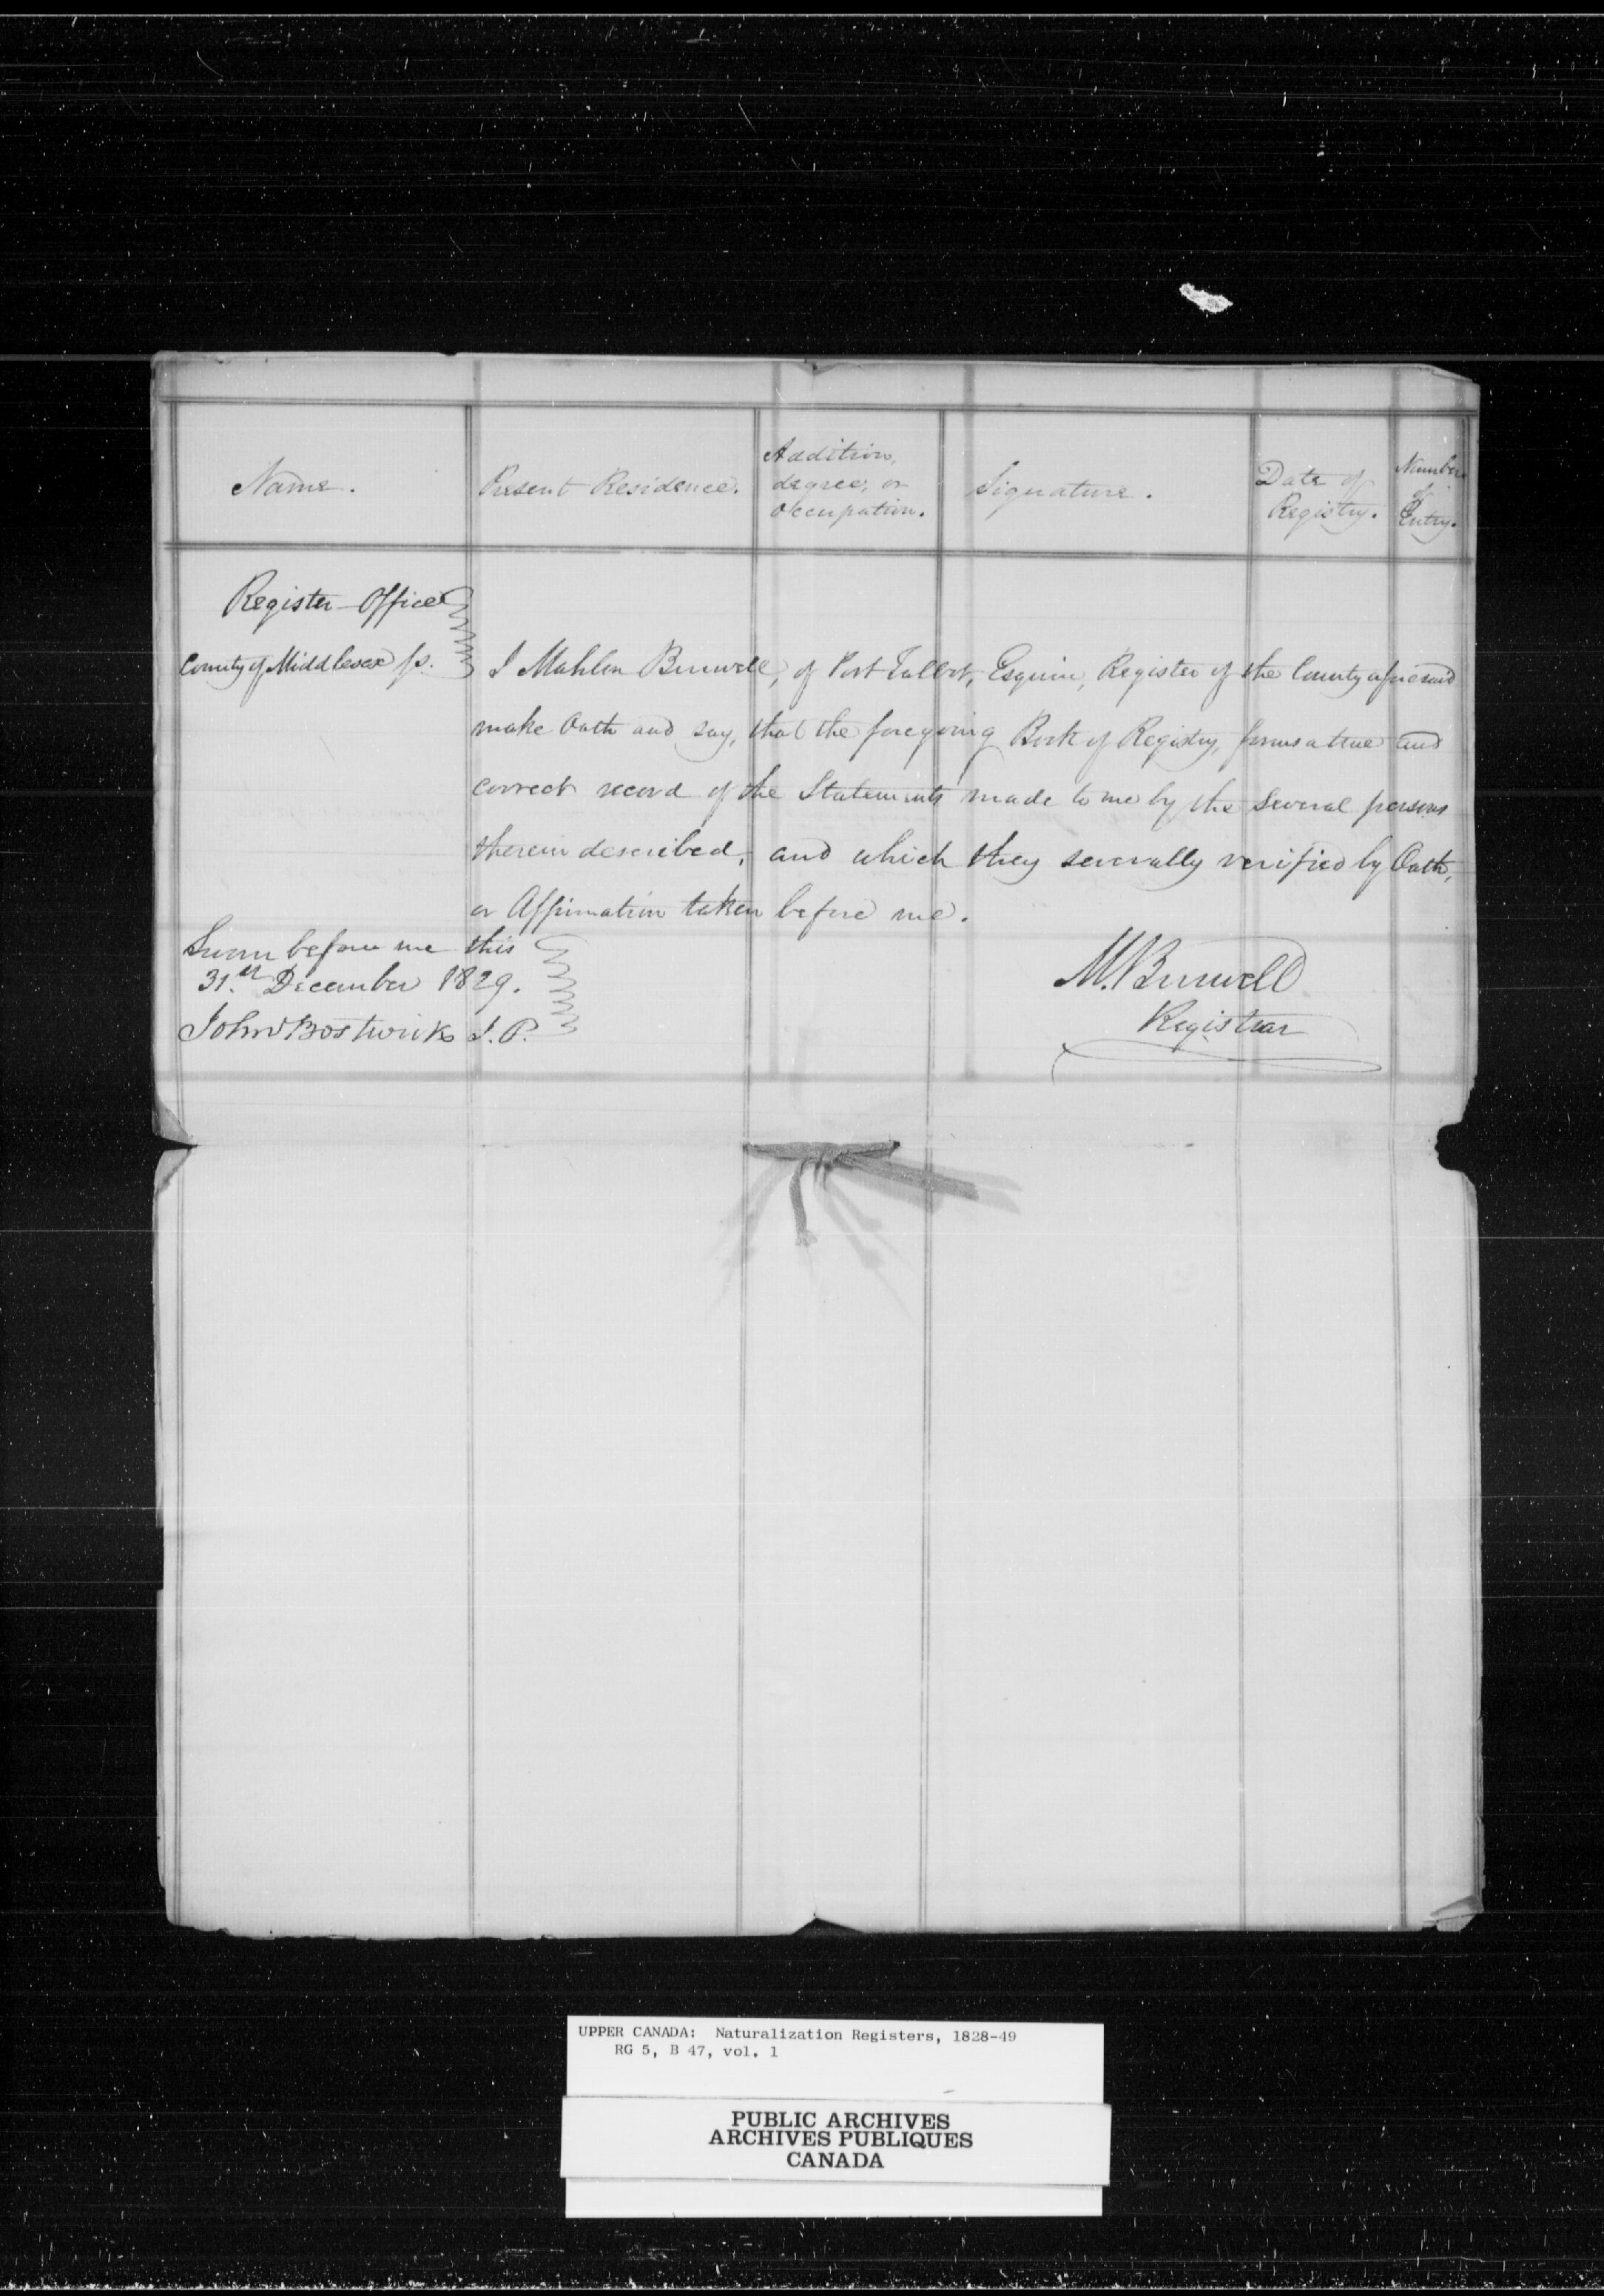 Name.
Present Residence.
Addition,
degree, or
Occupation.
Signature.
Date of
Registry.
Number
of
Entry.
Register Office
County of Middlesex ss.
I Mahlon Burwell, of Port Talbot, Esquire, Register of the County aforesaid
make Oath and say, that the foregoing Book of Registry, forms a true and
correct record of the Statements made to me by the Several persons
therein described, and which they severally verified by Oath,
or Affirmation taken before me.
Sworn before me this
31.st December 1829.
John Bostwick J.P.
M. Burwell
Registrar
UPPER CANADA: Naturalization Registers, 1828-49
RG 5, B 47, vol. 1
PUBLIC ARCHIVES
ARCHIVES PUBLIQUES
CANADA